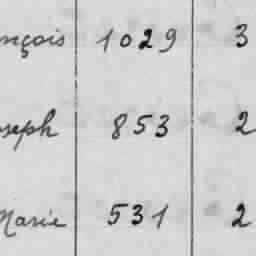 nçois 1029 3
oseph 853 2
Marie 531 2